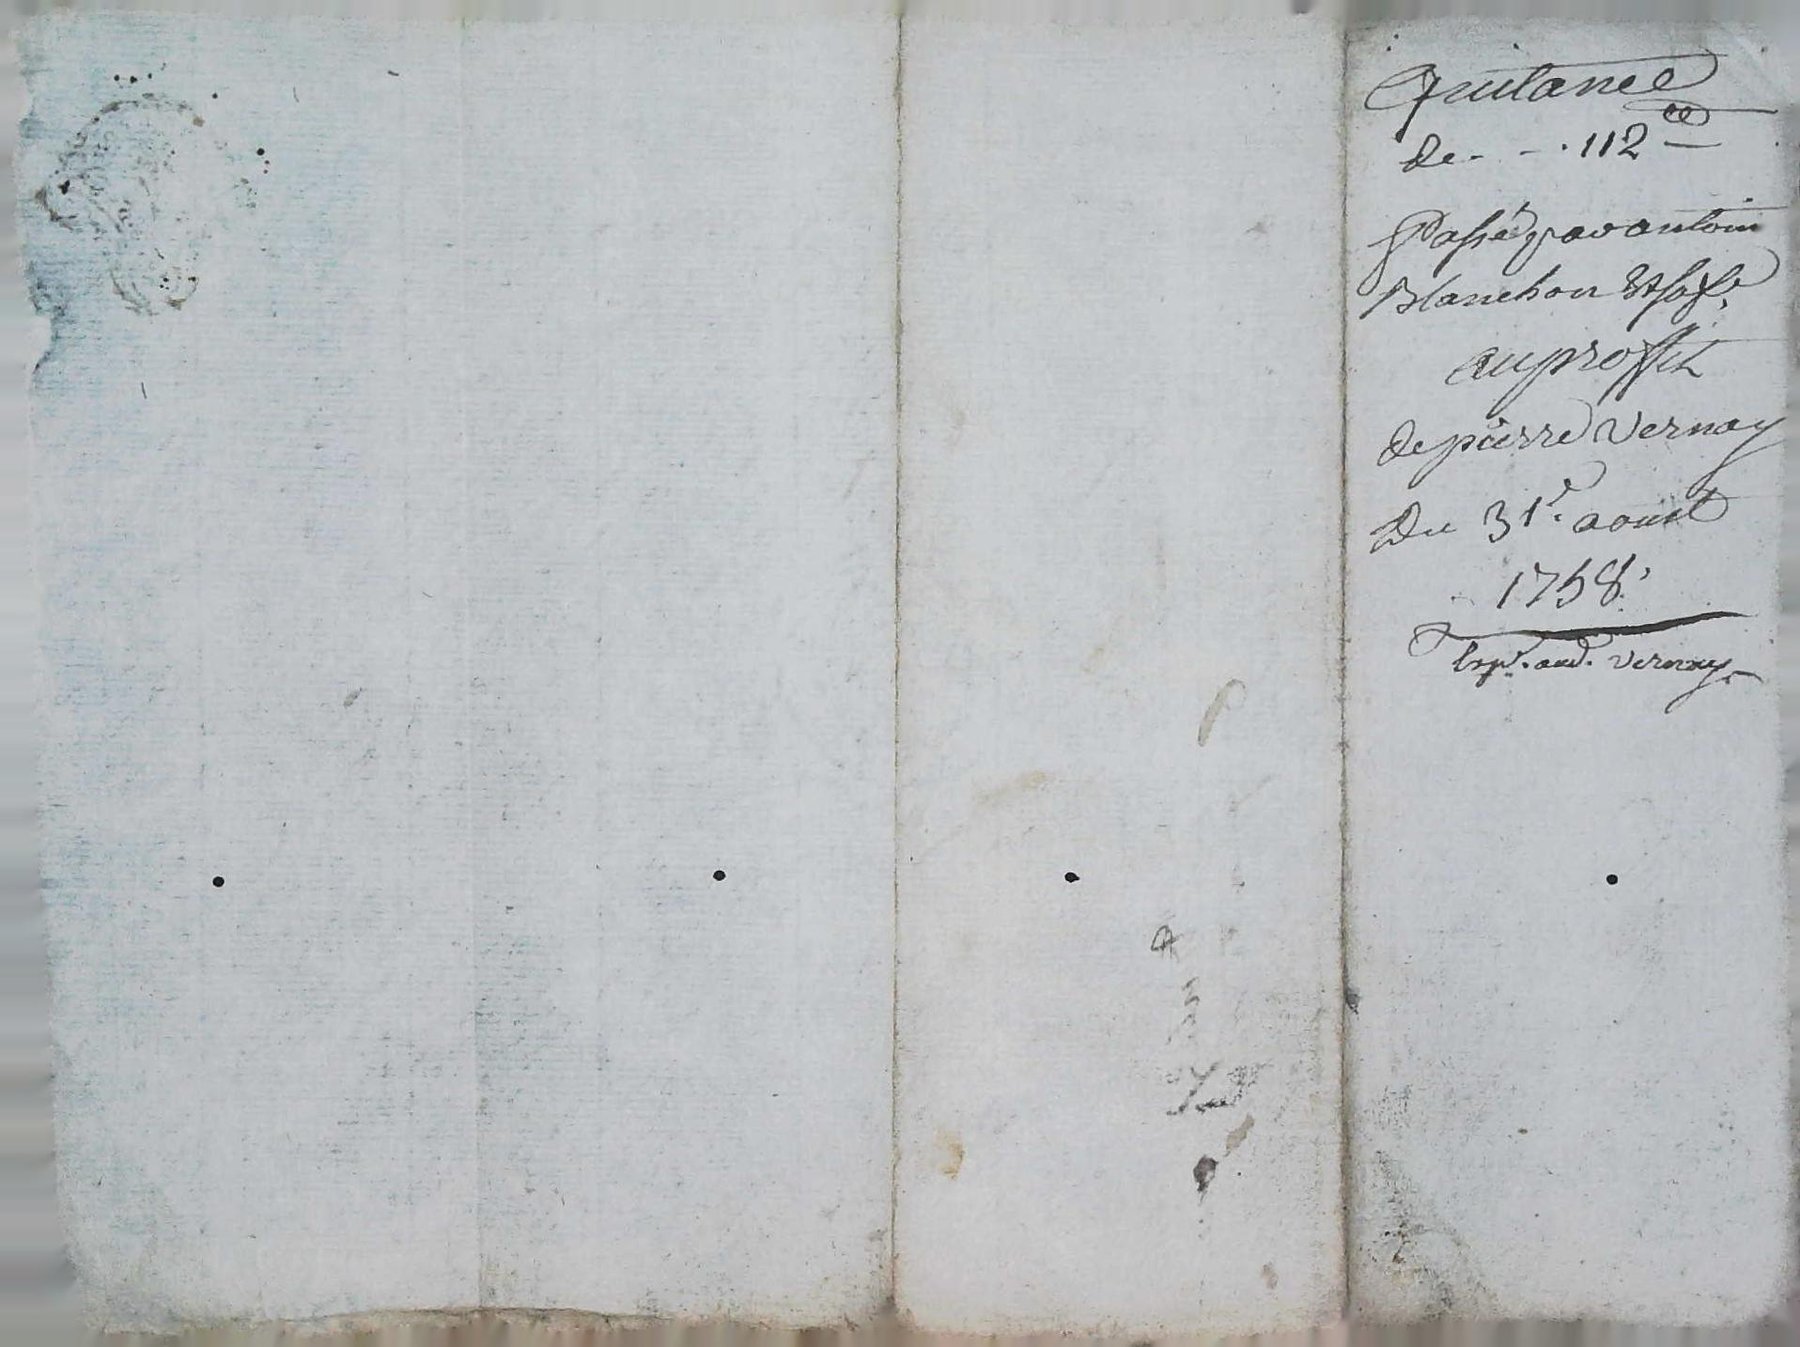 Quitance
de - - . 112 ll
Passé par antoin
Blanchon & sa fe
au proffit
de pierre Vernay
Du 31e. aoust
1758.
Expn. aud. Vernay